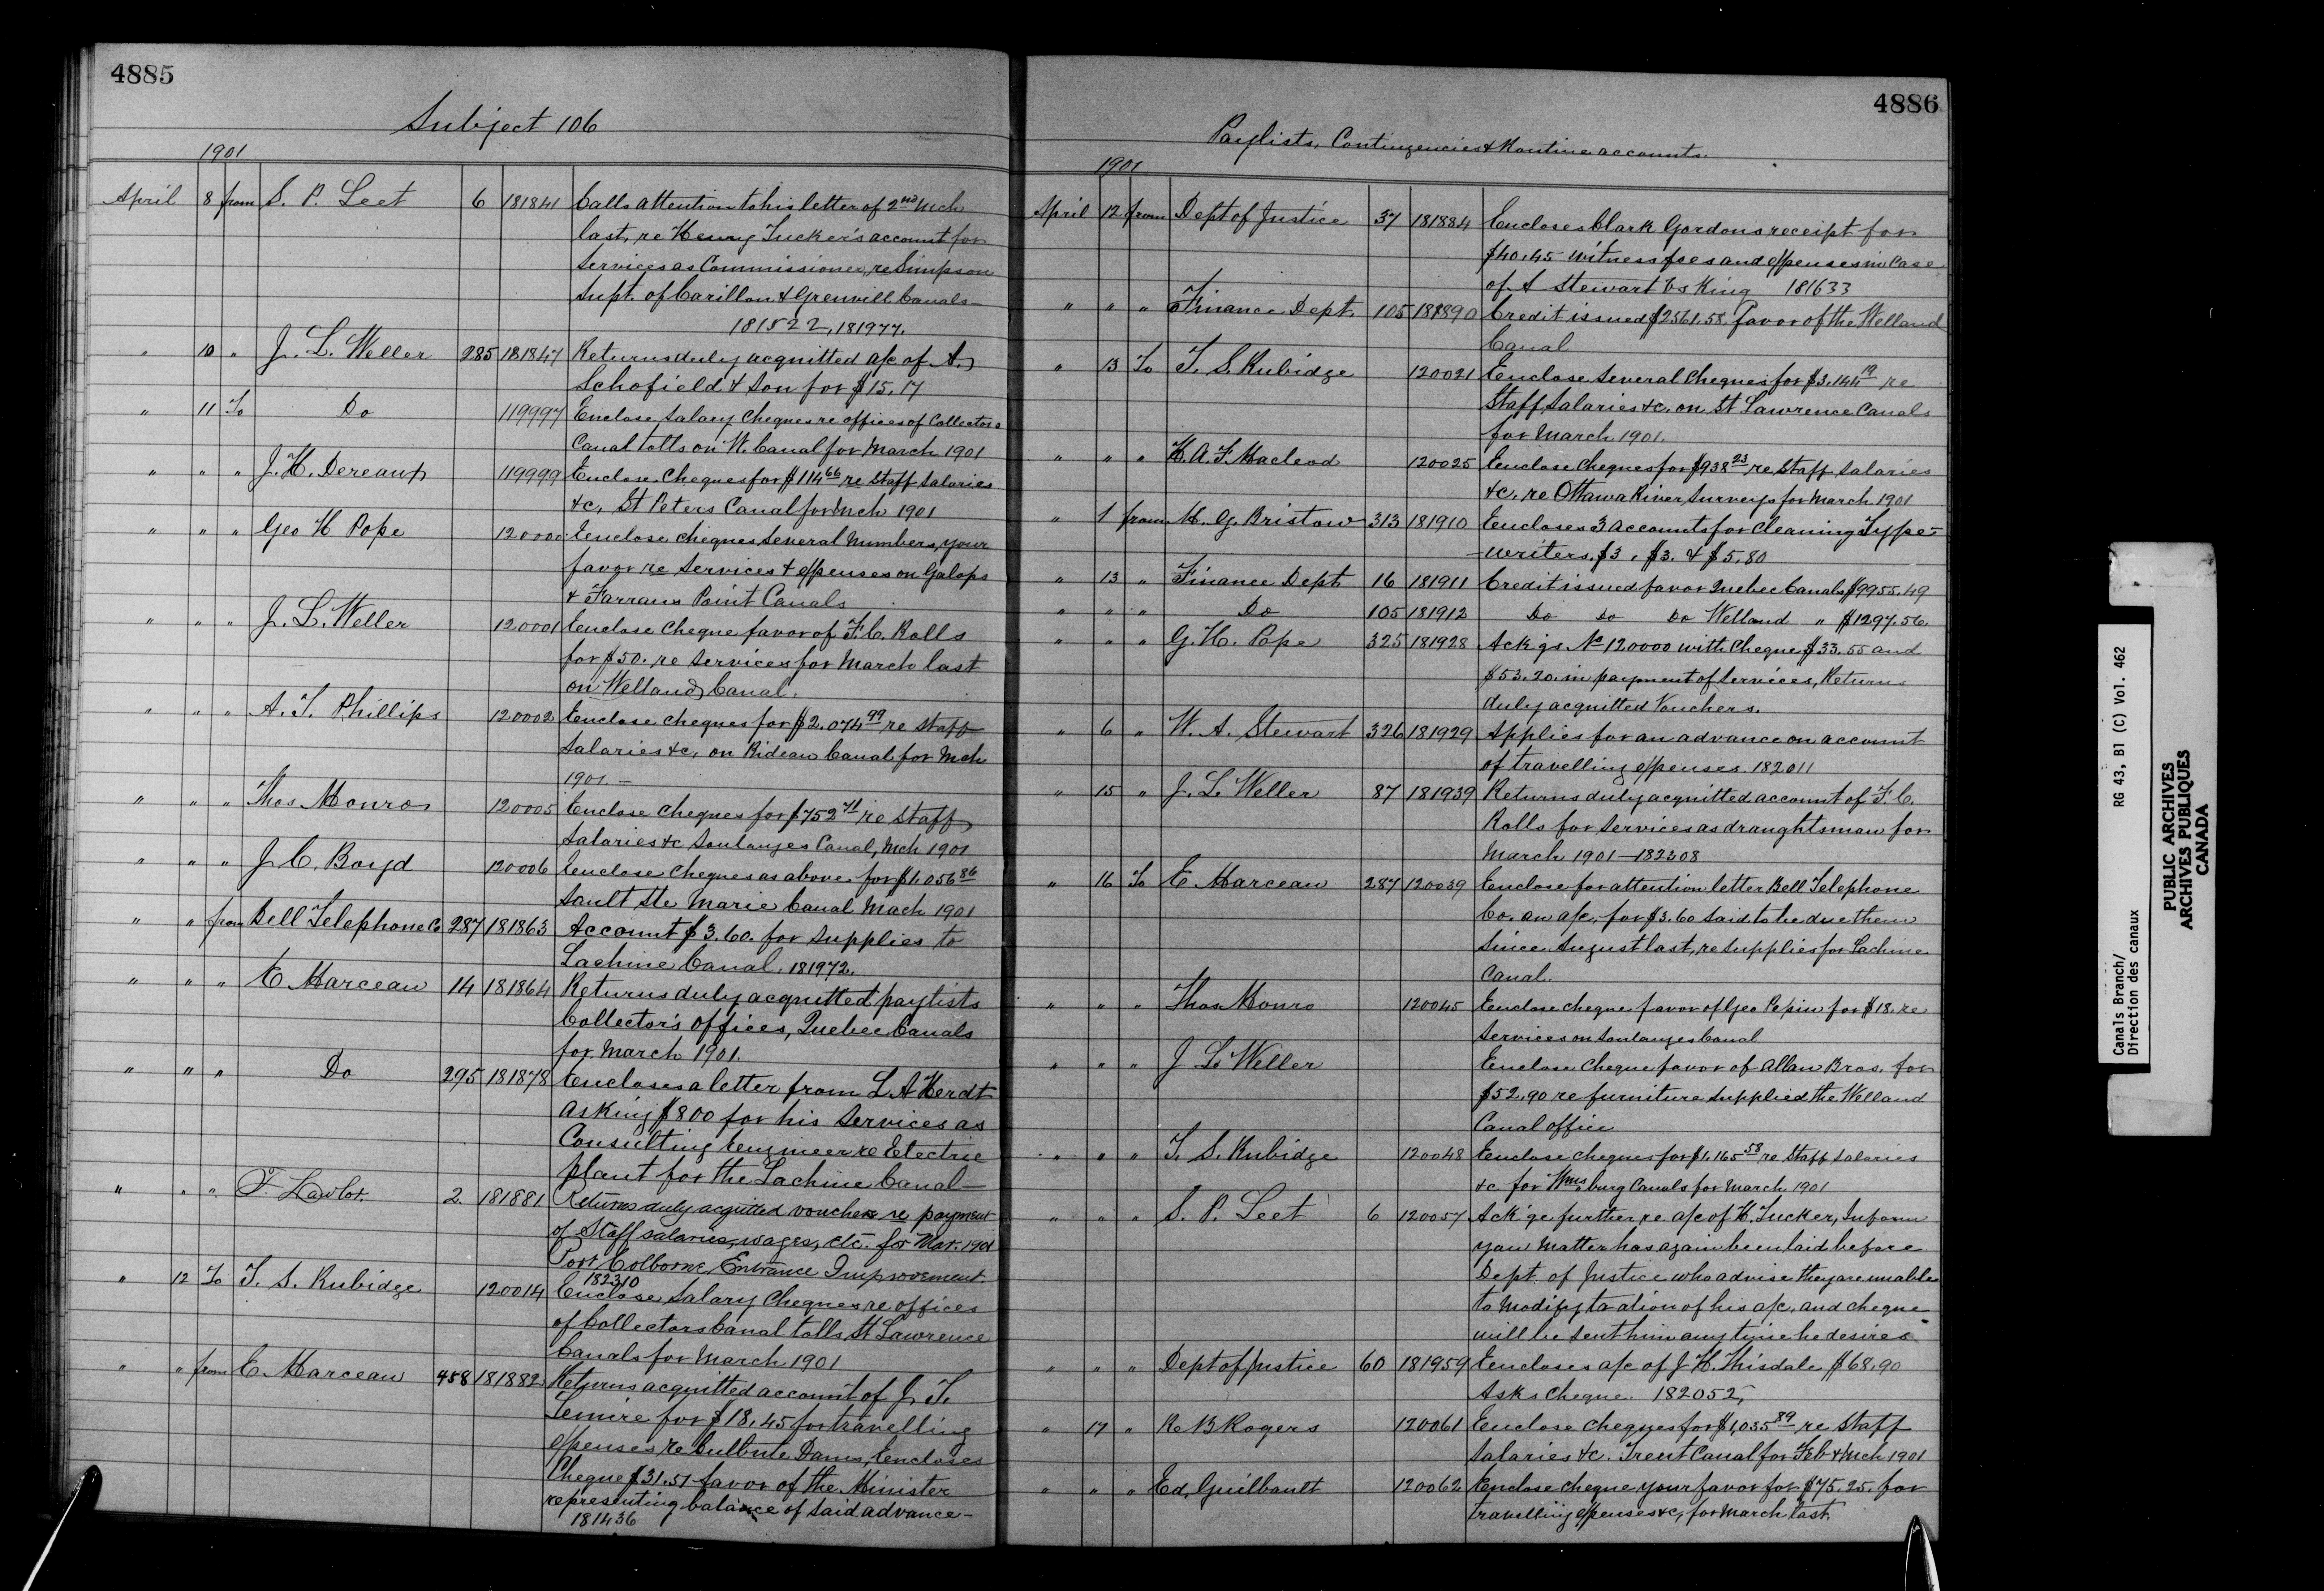 4885
Subject 106
1901
April 8 from S. P. Leet 6 181841 Calls attention to his letter of 2nd Mch
last, re Henry Tucker's account for
Services as Commissioner, re Simpson
Supt. of Carillon & Grenvill Canals —
181522, 181977.
" 10 " J. L. Weller 285 181847 Returns duly acquitted a/c of A.
Schofield & Son for $15.17
" 11 To Do 119997 Enclose Salary Cheques re offices of Collectors
Canal tolls on W. Canal for March 1901
" " " J. H. Dereaux 119999 Enclose Cheques for $114 66 re Staff Salaries
&c, St Peters Canal for Mch 1901
" " " Geo H Pope 120000 Enclose cheques, Several Numbers, your
favor re Services & expenses on Galops
& Farrans Point Canals
" " " J. L. Weller 120001 Enclose Cheque favor of F. C. Rolls
for $50. re Services for March last
on Welland Canal.
" " " A. T. Phillips 120002 Enclose cheques for $2.074 99 re Staff
Salaries &c, on Rideau Canal for Mch
1901. —
" " " Thos Monro 120005 Enclose Cheques for $752 71 re Staff
Salaries &c Soulanges Canal, Mch 1901
" " " J. C. Boyd 120006 Enclose Cheques as above for $1.056 86
Sault Ste Marie Canal Mach 1901
" " from Bell Telephone Co 287 181863 Account $3.60. for Supplies to
Lachine Canal. 181972.
" " " E Marceau 14 181864 Returns duly acquitted paylists
Collector's Offices, Quebec Canals
for March 1901.
" " " Do 295 181878 Encloses a letter from L. A Herdt
asking $800 for his Services as
Consulting Engineer re Electric
plant for the Lachine Canal —
" " " F. Lawlor 2 181881 Returns duly acquitted vouchers re payment
of Staff salaries, wages, etc. for Mar. 1901
Port Colborne Entrance Improvement
182310
" 12 To T. S. Rubidge 120014 Enclose Salary Cheques re offices
of Collectors Canal tolls, St Lawrence
Canals for March 1901
" " from E. Marceau 458 181882 Returns acquitted account of J. T.
Lemire for $18.45 for travelling
expenses re Bulbute Dams, Encloses
Cheque $31.57 favor of the Minister
representing balance of said advance —
181436
4886
Paylists, Contingencies & Routine accounts.
1901
April 12 from Dept of Justice 37 181884 Encloses Clark Gordons receipt for
$40.45 witness fees and expenses in Case
of A Stewart vs King 181633
" " " Finance Dept. 105 181890 Credit issued $2561.58 favor of the Welland
Canal
" 13 To T. S. Rubidge 120021 Enclose Several Cheques for $3.144 19 re
Staff Salaries &c. on St Lawrence Canals
for March 1901.
" " " H. A. F. Macleod 120025 Enclose Cheques for $938 23 re Staff Salaries
&c. re Ottawa River Surveys for March 1901
" 1 from M. G. Bristow 313 181910 Encloses 3 accounts for Cleaning Type-
-writers. $3, $3. & $5.80
" 13 " Finance Dept. 16 181911 Credit issued favor Quebec Canals $9955.49
" " " Do 105 181912 Do Do Do Welland " $1297.56.
" " " G. H. Pope 325 181928 Ack'gs No 120000 with Cheque $33.55 and
$53.20. in payment of Services, Returns
duly acquitted Vouchers.
" 6 " W. A. Stewart 326 181929 Applies for an advance on account
of travelling expenses. 182011
" 15 " J. L. Weller 87 181939 Returns duly acquitted account of F. C.
Rolls for Services as draughtsman for
March 1901 — 182308
" 16 To E Marceau 287 120039 Enclose for attention letter Bell Telephone
Co. an a/c, for $3.60 Said to be due them
Since August last, re Supplies for Lachine
Canal.
" " " Thos Monro 120045 Enclose cheque favor of Geo Pepin for $18. re
Services on Soulanges Canal
" " " J L. Weller Enclose Cheque favor of Allan Bros. for
$52.90 re furniture Supplied the Welland
Canal office
" " " T. S. Rubidge 120048 Enclose cheques for $1.165 58 re Staff Salaries
&c for Wmsburg Canals for March 1901
" " " S. P. Leet 6 120057 Ack'ge further re a/c of H. Tucker, Inform
you Matter has again been laid before
Dept. of Justice who advise they are unable
to Modify taxation of his a/c, and cheque
will be Sent him any time he desires
" " " Dept of Justice 60 181959 Encloses a/c of J. H. Thisdale $68.90
Asks Cheque. 182052,
" 17 " R B Rogers 120061 Enclose cheques for $1,035 89 re Staff
Salaries &c. Trent Canal for Feb & Mch 1901
" " " Ed, Guilbault 120062 Enclose cheque your favor for $75.25. for
travelling expenses &c, for March last
Canals Branch/
Direction des canaux
RG 43, B1 (C) Vol. 462
PUBLIC ARCHIVES
ARCHIVES PUBLIQUES
CANADA